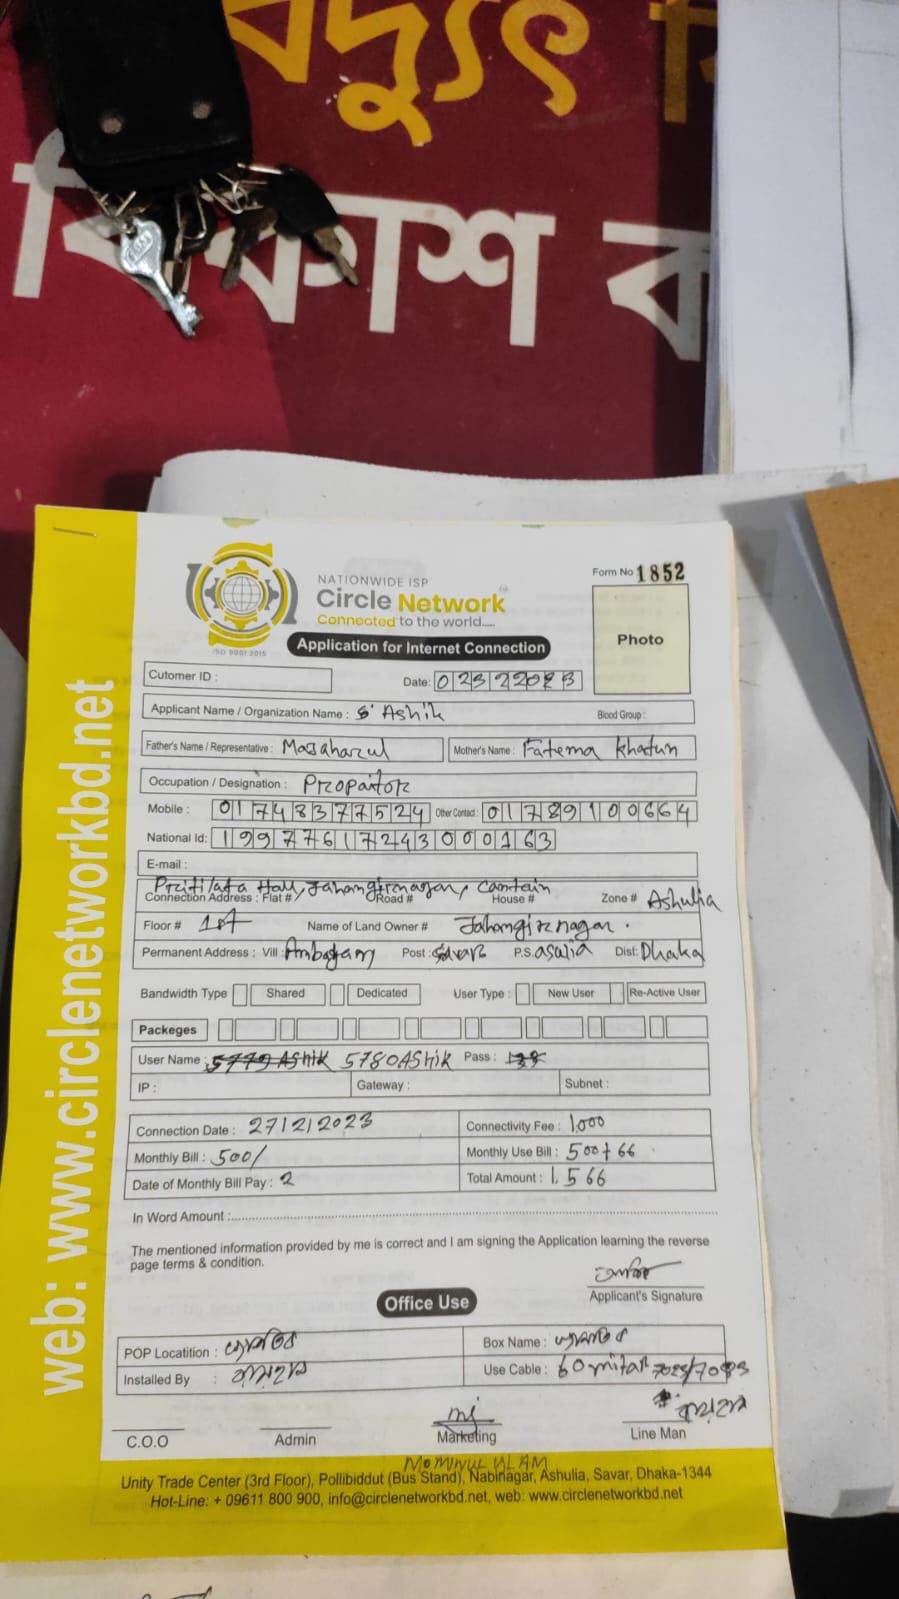 বিদ্যুৎ বি
বিকাশ ক
NATIONWIDE ISP
Circle Network
Connected to the world.....
ISO 9001:2015
Form No 1852
Photo
Application for Internet Connection
Cutomer ID :
Date:
Applicant Name / Organization Name : S Ashik Blood Group :
Father's Name / Representative : Masaharul Mother's Name : Fatema Khatun
Occupation / Designation : Propaitor
Mobile : 01748377524 Other Contact : 01789100664
National Id: 19977617243000163
E-mail :
Pritilata Hall, Jahangirnagar, Camtein
Connection Address : Flat # Road # House # Zone # Ashulia
Floor # 1st Name of Land Owner # Jahangirnagar.
Permanent Address : Vill : Ambagam Post : Savar P.S. asulia Dist: Dhaka
Bandwidth Type Shared Dedicated User Type : New User Re-Active User
Packeges
User Name : 5779 Ashik 5780AShik Pass :
IP : Gateway : Subnet :
Connection Date : 27/2/2023 Connectivity Fee : 1,000
Monthly Bill : 500/ Monthly Use Bill : 500+66
Date of Monthly Bill Pay : 2 Total Amount : 1,566
In Word Amount :
The mentioned information provided by me is correct and I am signing the Application learning the reverse
page terms & condition.
Applicant's Signature
Office Use
POP Locatition : Box Name :
Installed By : Use Cable : 60 mitar
C.O.O Admin Marketing Line Man
MOMINUL ISLAM
Unity Trade Center (3rd Floor), Pollibiddut (Bus Stand), Nabinagar, Ashulia, Savar, Dhaka-1344
Hot-Line: + 09611 800 900, info@circlenetworkbd.net, web: www.circlenetworkbd.net
web: www.circlenetworkbd.net